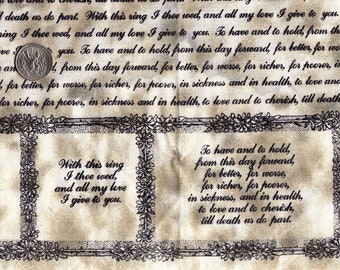 death us do part. With this ring I thee wed, and all my love I give to you.
I thee wed, and all my love I give to you. To have and to hold, from this
you. To have and to hold, from this day forward, for better, for wor
from this day forward, for better, for worse, for richer, for poorer,
for better, for worse, for richer, for poorer, in sickness and in health, to
for richer, for poorer, in sickness and in health, to love and to cherish,
for poorer, in sickness and in health, to love and to cherish, till death
With this ring
I thee wed,
and all my love
I give to you.
To have and to hold,
from this day forward,
for better, for worse,
for richer, for poorer,
in sickness, and in health,
to love and to cherish,
till death us do part.